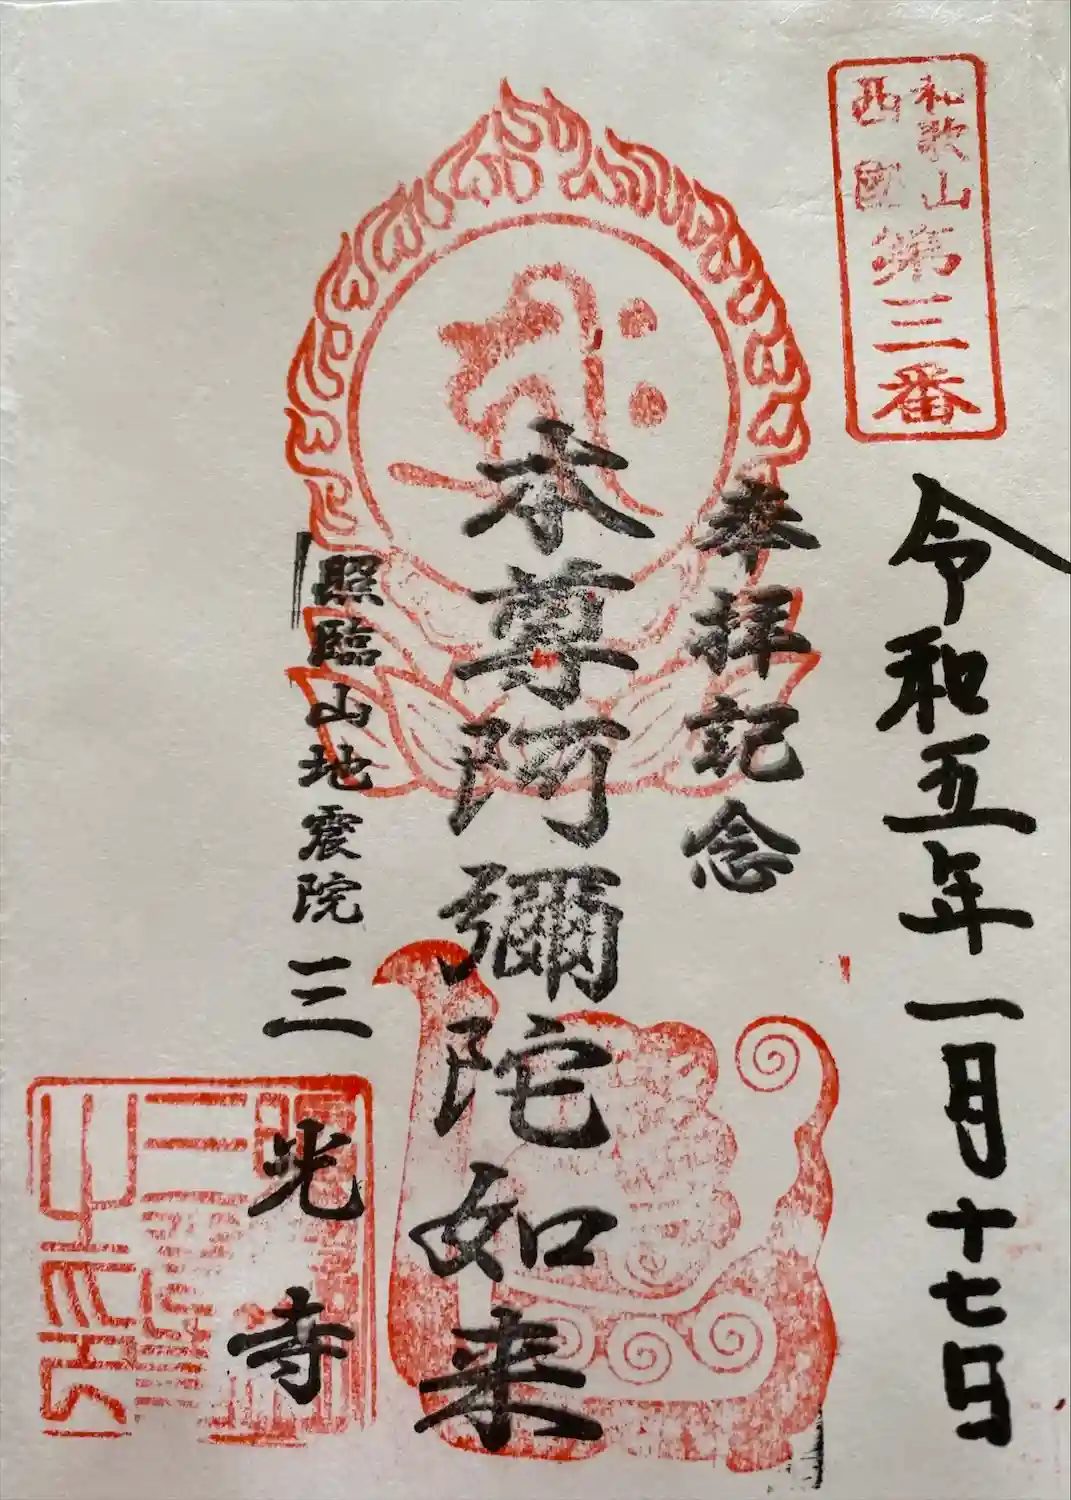 和歌山
西國
第三番
令和五年一月十七日
奉拝記念
本尊阿彌陀如来
照臨山地震院
三光寺